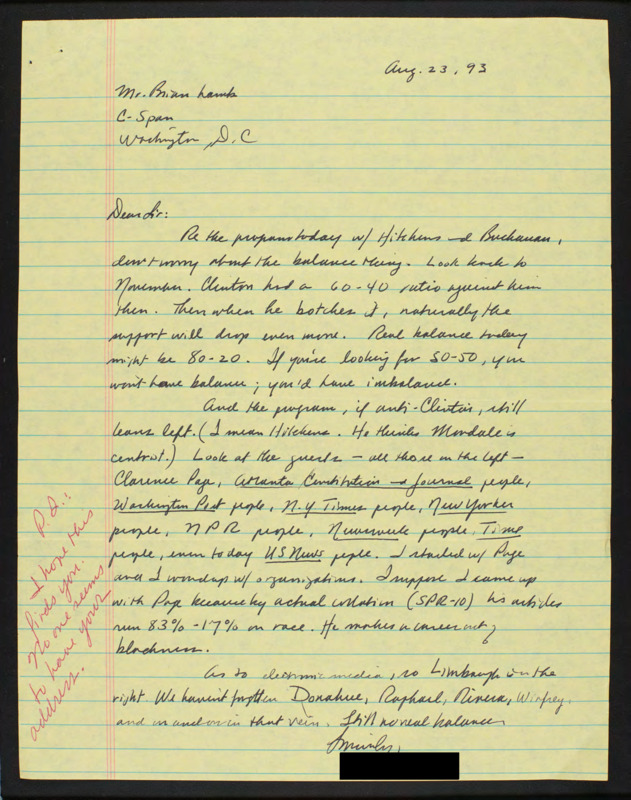 Aug. 23, 93
Mr. Brian Lamb
C-Span
Washington D.C
Dear Sir:
Re the program today w/ Hitchens and Buchanan,
don't worry about the balance thing. Look back to
November. Clinton had a 60-40 ratio against him
then. Then when he botches it, naturally the
support will drop even more. Real balance today
might be 80-20. If you're looking for 50-50, you
won't have balance; you'd have imbalance.
And the program, if anti-Clinton, still
leans left. (I mean Hitchens. He thinks Mondale is
centrist.) Look at the guests - all those on the left -
Clarence Page, Atlanta Constitution and Journal people,
Washington Post people, N.Y Times people, New Yorker
people, NPR people, Newsweek people, Time
people, even today US News people. I started w/ Page
and I wound up w/ organizations. I suppose I came up
with Page because by actual (SPR-10) his articles
run 83% - 17% on race. He makes a career out of
blackness.
As to electronic media, so Limbaugh is on the
right. We haven't forgotten Donahue, Raphael, Rivera, Winfrey,
and on and on in that vein. Still no real balance
Sincerely,
P.S.:
I hope this
finds you.
No one seems
to have your
address.